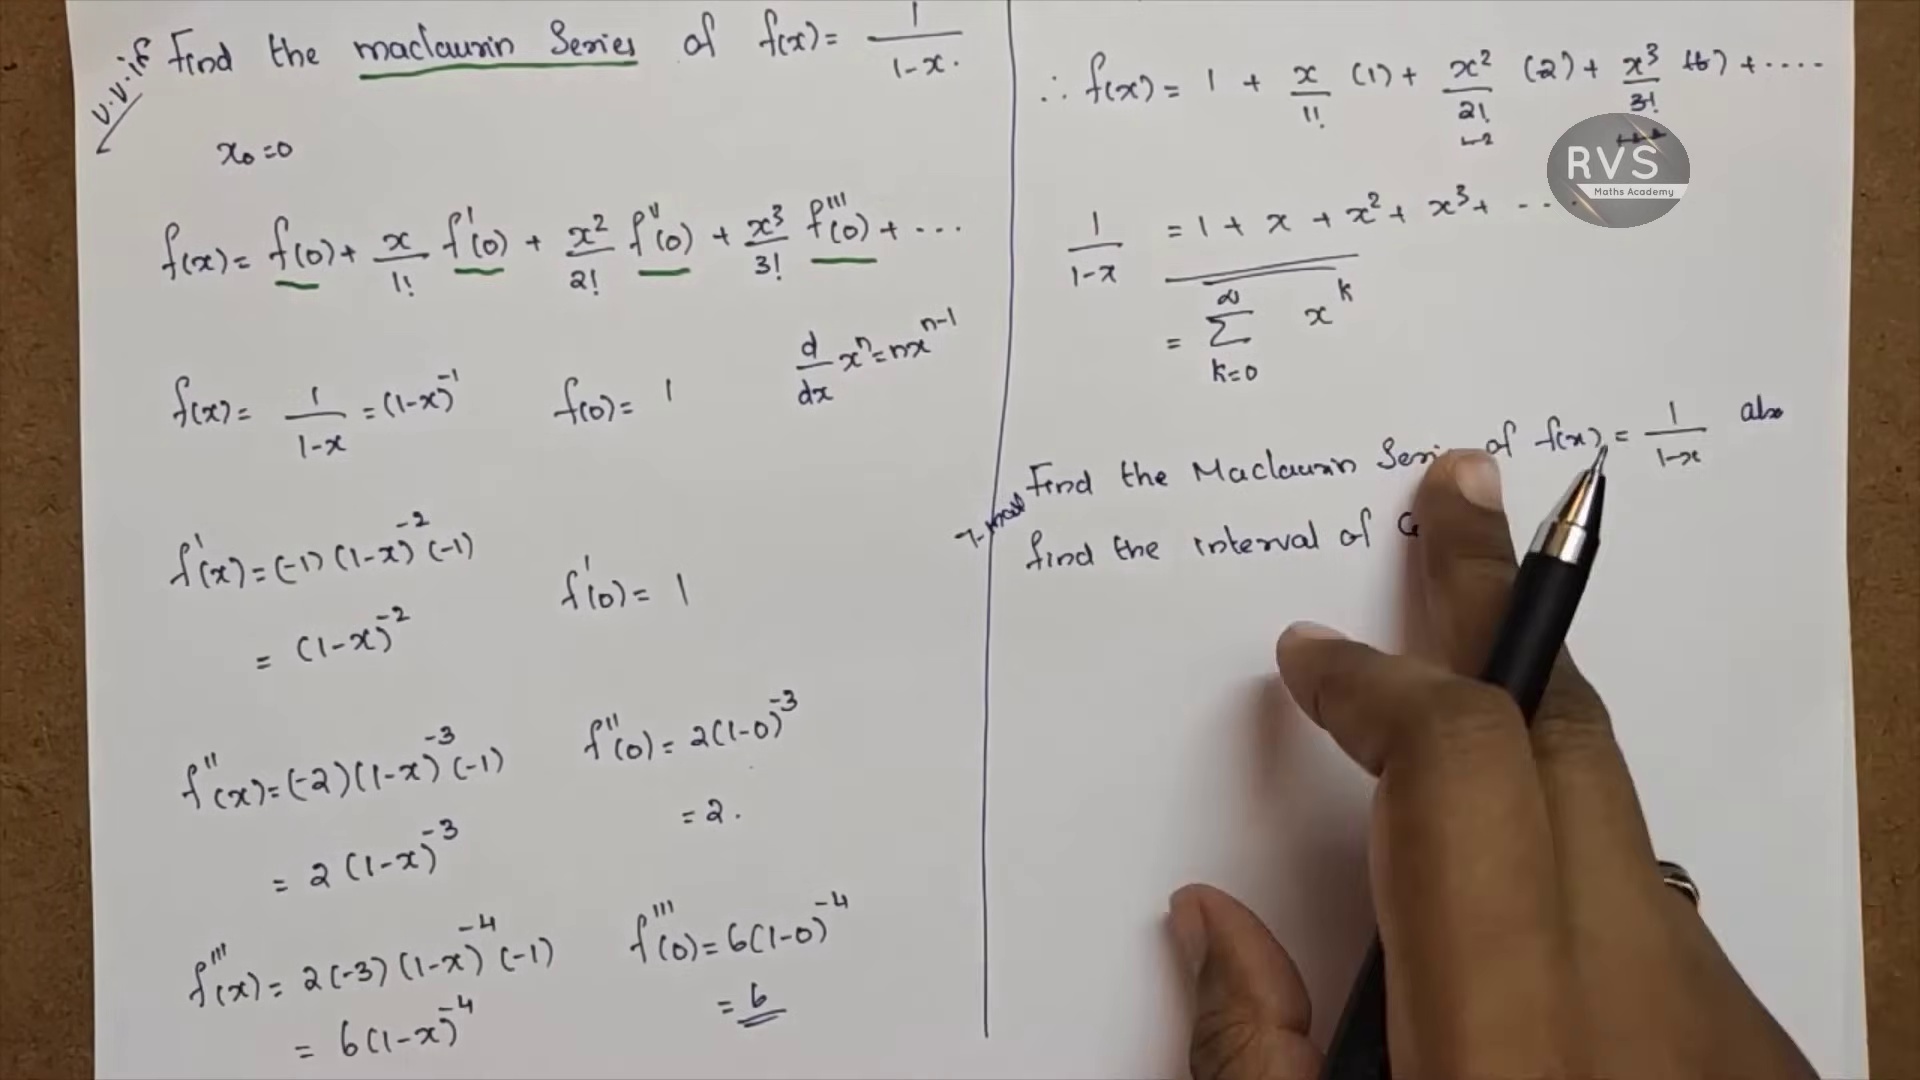 v.v.if Find the maclaurin Series of f(x) = 1/(1-x).
x₀=0
f(x) = f(0) + x/1! f'(0) + x²/2! f''(0) + x³/3! f'''(0) + ...
f(x) = 1/(1-x) = (1-x)⁻¹ f(0) = 1 d/dx xⁿ = nxⁿ⁻¹
f'(x) = (-1)(1-x)⁻²(-1)
= (1-x)⁻² f'(0) = 1
f''(x) = (-2)(1-x)⁻³(-1) f''(0) = 2(1-0)⁻³
= 2(1-x)⁻³ = 2.
f'''(x) = 2(-3)(1-x)⁻⁴(-1) f'''(0) = 6(1-0)⁻⁴
= 6(1-x)⁻⁴ = 6
∴ f(x) = 1 + x/1! (1) + x²/2! (2) + x³/3! (6) + ....
RVS
Maths Academy
1/(1-x) = 1 + x + x² + x³ + ...
= ∑_{k=0}^{∞} x^k
Find the Maclaurin Series of f(x) = 1/(1-x) also
find the interval of